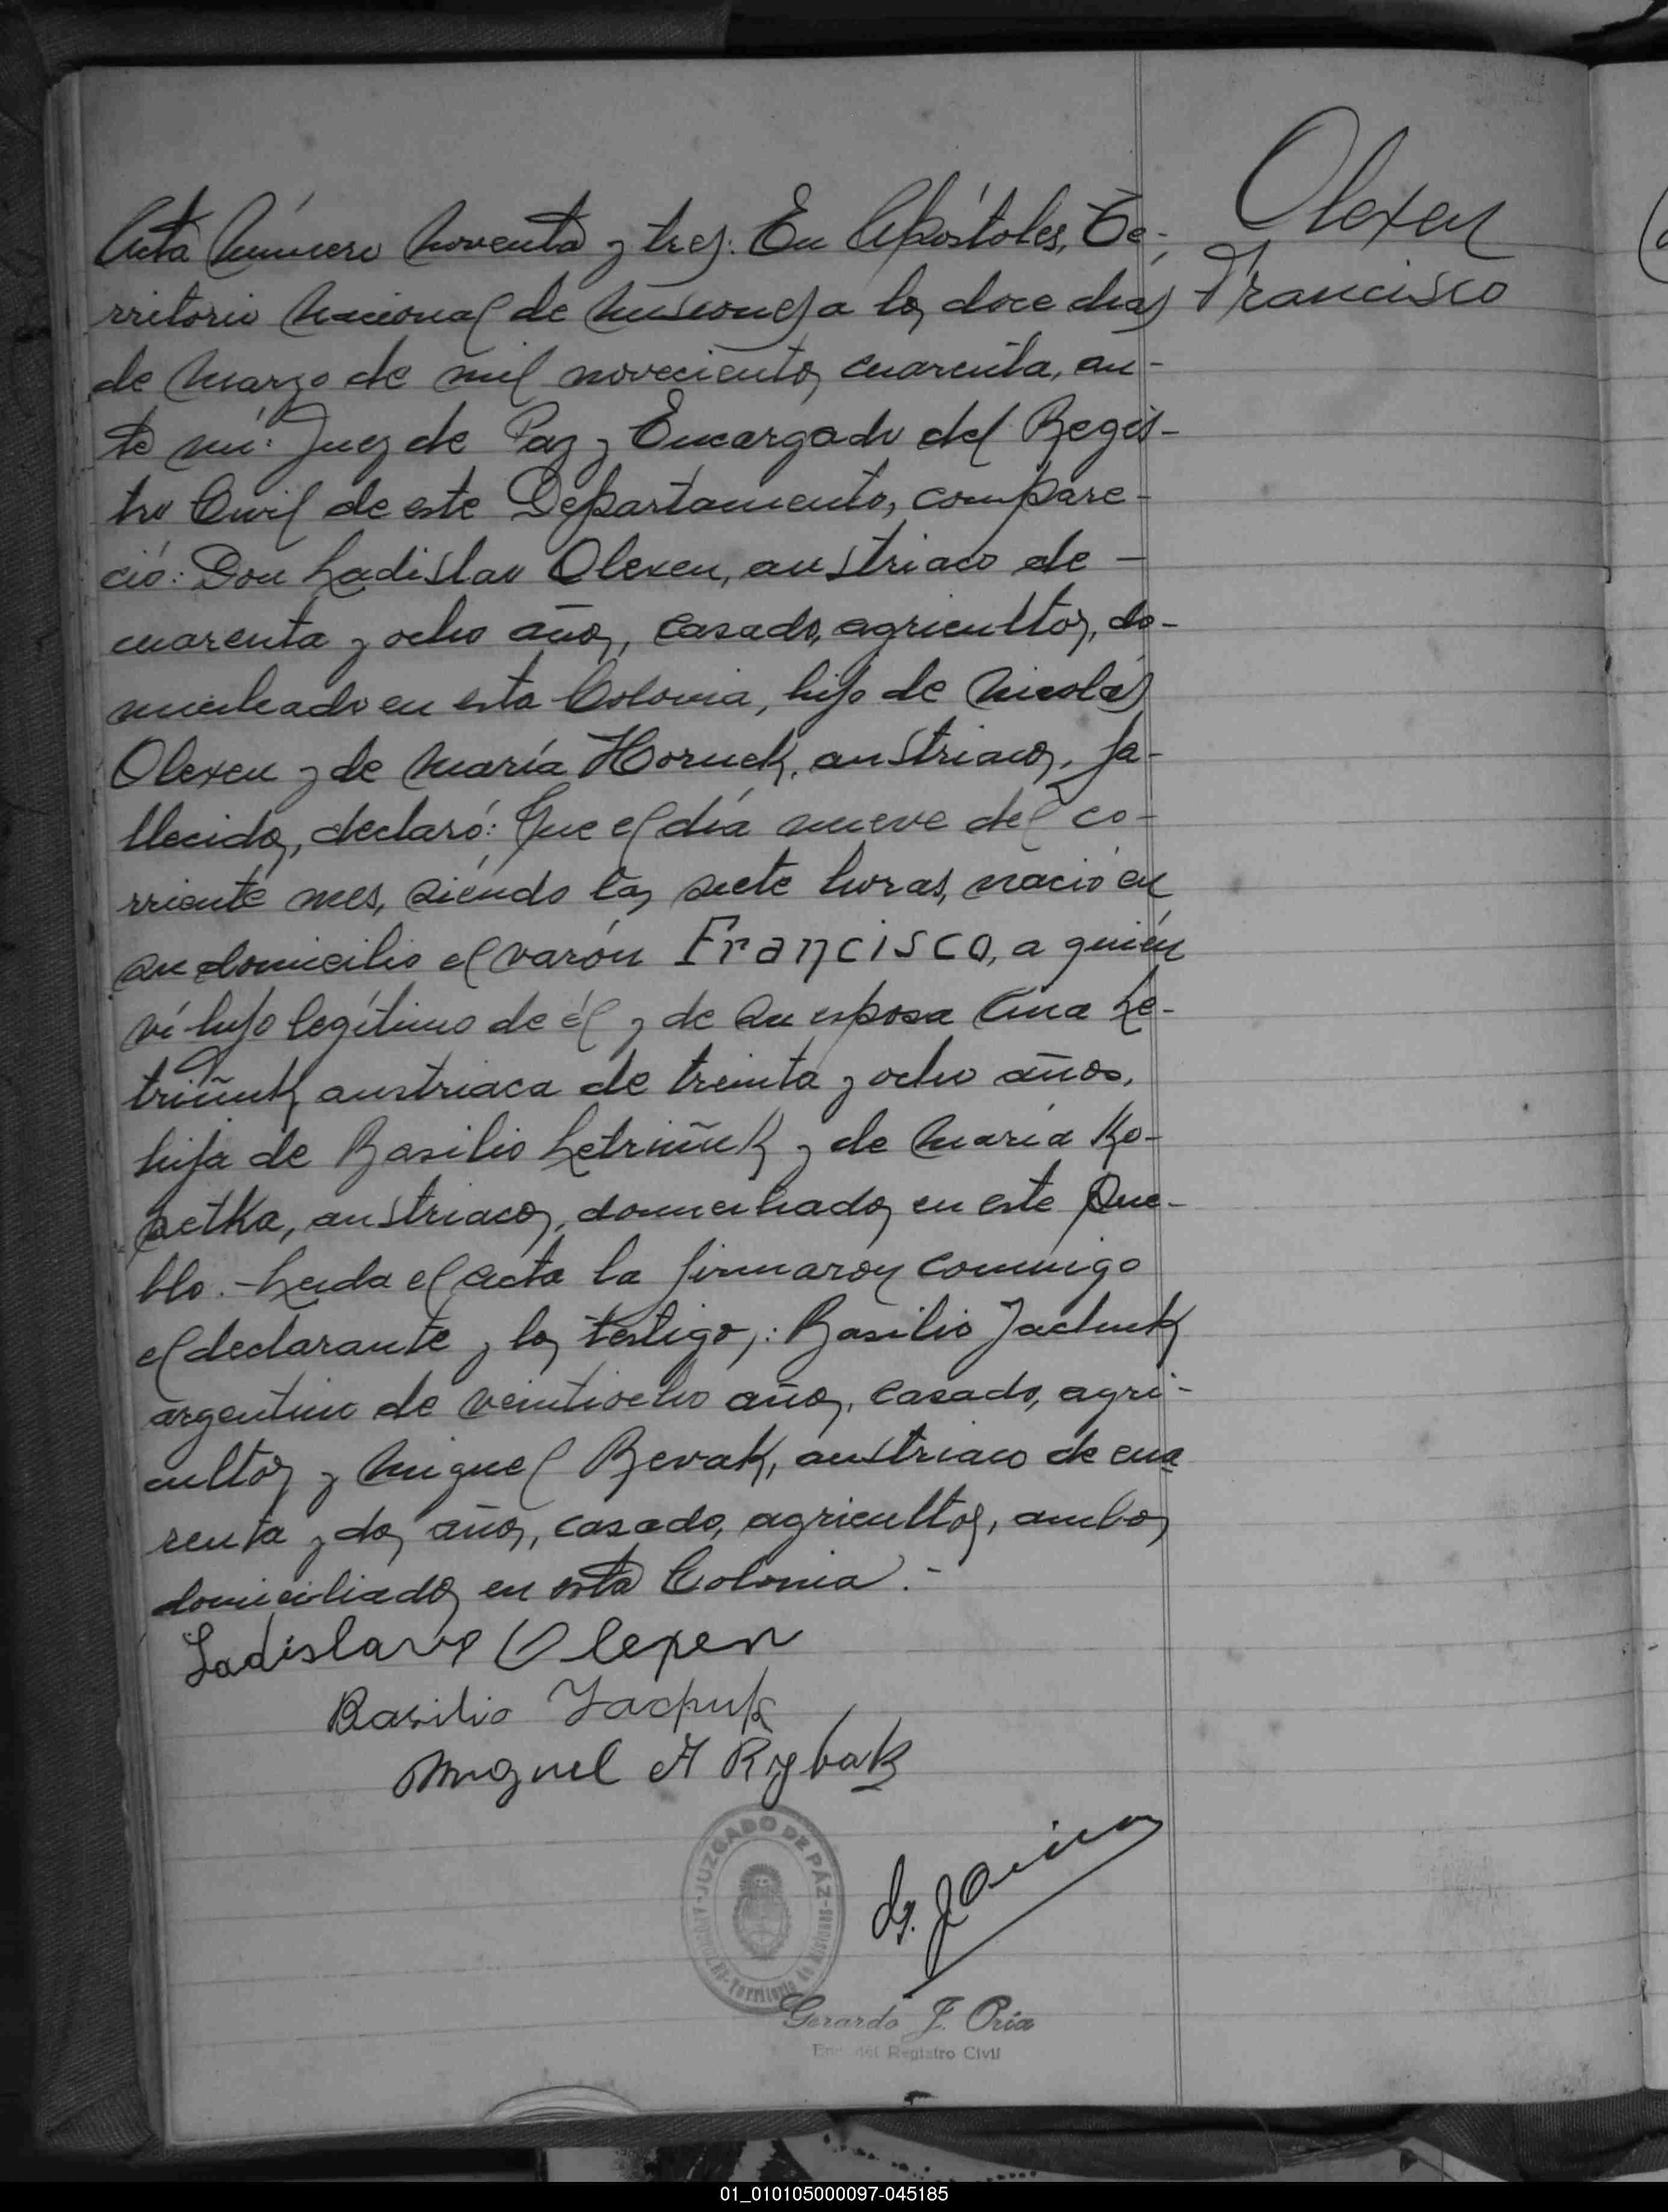 Olexen
Francisco
Acta Número Noventa y tres: En Apóstoles, Te-
rritorio Nacional de Misiones a los doce días
de Marzo de mil novecientos cuarenta, an-
te mí: Juez de Paz y Encargado del Regis-
tro Civil de este Departamento, compare-
ció: Don Ladislao Olexen, austriaco de -
cuarenta y ocho años, casado, agricultor, do-
miciliado en esta Colonia, hijo de Nicolás
Olexen y de María Hornek, austriacos, fa-
llecidos, declaró: Que el día nueve del co-
rriente mes, siéndo las siete horas, nació en
su domicilio el varón Francisco, a quién
ví hijo legítimo de él y de su esposa Ana Le-
triñuk austriaca de treinta y ocho años,
hija de Basilio Letriñuk y de María Ko-
petka, austriacos, domiciliados en este Pue-
blo. - Leida el acta la firmaron conmigo
el declarante y los testigos: Basilio Jachuk
argentino de veintiocho años, casado, agri-
cultor y Miguel Revak, austriaco de cua
renta y dos años, casado, agricultor, ambos
domiciliados en esta Colonia. -
Ladislavo Olexen
Basilio Jachuk
Miguel A Rybak
JUZGADO DE PAZ
Territorio de Misiones
Gerardo J. Oria
Enc. del Registro Civil
01_010105000097-045185